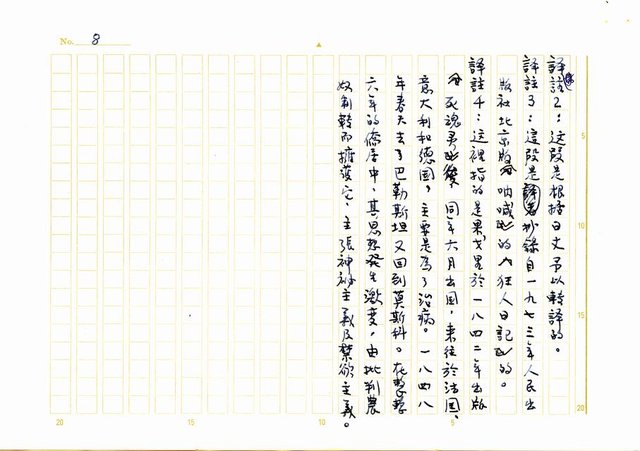 No. 8
譯註2：這段是根據日文予以轉譯的。
譯註3：這段是譯者抄錄自一九七三年人民出
版社北京版《吶喊》的〈狂人日記〉的。
譯註4：這裡指的是果戈里於一八四二年出版
《死魂靈》後，同年六月出國，來往於法國、
意大利和德國，主要是為了治病。一八四八
年春天去了巴勒斯坦又回到莫斯科。在整整
六年的僑居中，其思想發生激變，由批判農
奴制轉而擁護它，主張神祕主義及禁欲主義。
5
10
15
20
20
15
10
5